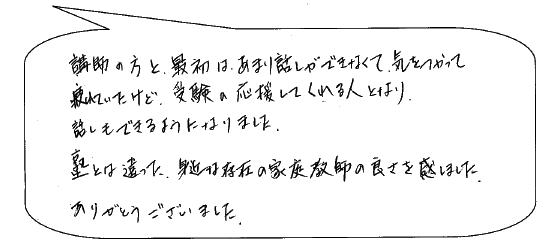 講師の方と、最初は、あまり話しができなくて、気をつかって
疲れていたけど、受験の応援してくれる人となり、
話しもできるようになりました。
塾とは違った、身近な存在の家庭教師の良さを感しました。
ありがとうございました。